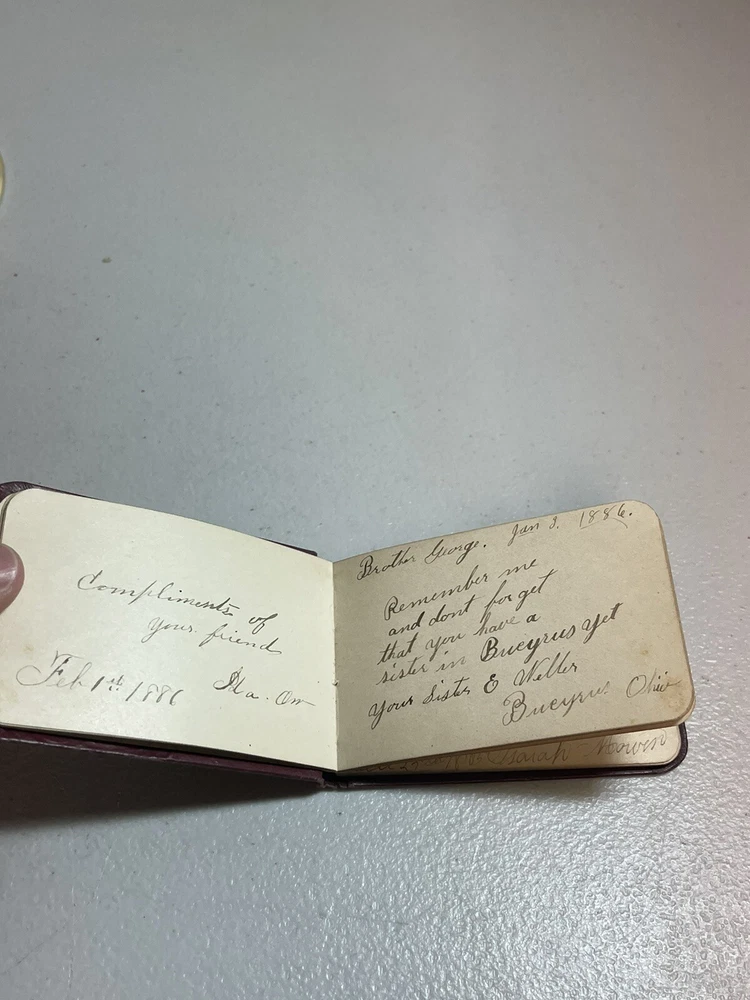 Compliments of
your friend
Feb 1st 1886
Brother George. Jan 3. 1886.
Remember me
and dont forget
that you have a
sister in Bucyrus yet
your Sister E Weller
Bucyrus Ohio
Isaiah